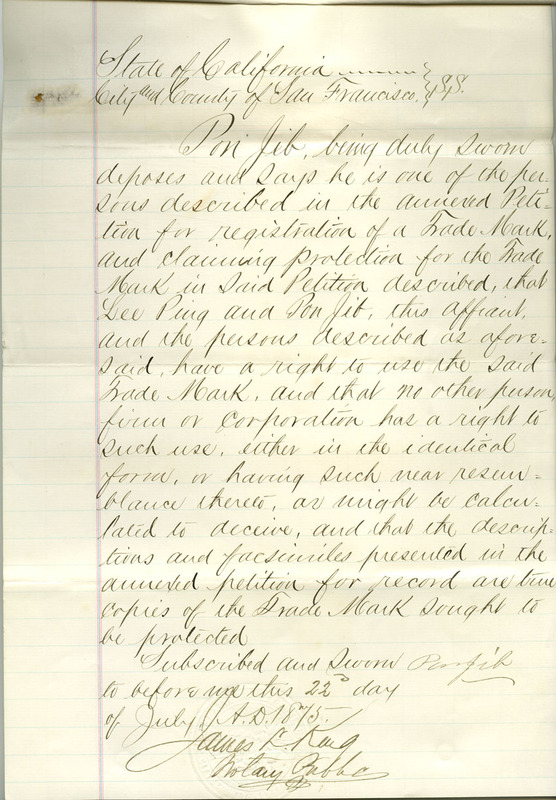 State of California
City and County of San Francisco. } SS.
Pon Jib, being duly sworn
deposes and says he is one of the per-
sons described in the annexed Peti-
tion for registration of a Trade Mark,
and claiming protection for the Trade
Mark in said Petition described, that
Lee Ping and Pon Jib, this affiant,
and the persons described as afore-
said, have a right to use the said
Trade Mark, and that no other person,
firm or corporation has a right to
such use, either in the identical
form, or having such near resem-
blance thereto, as might be calcu-
lated to deceive, and that the descrip-
tions and facsimiles presented in the
annexed petition for record are true
copies of the Trade Mark sought to
be protected
Subscribed and sworn Pon jib
to before me this 22d day
of July, A.D. 1875.
James L. King
Notary Public